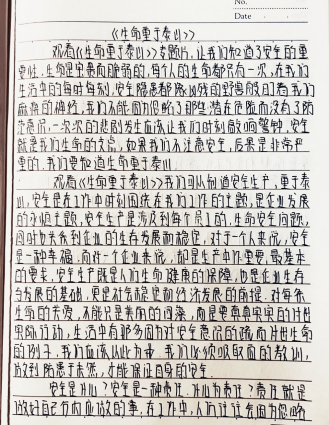 No.
Date
《生命重于泰山》
观看《生命重于泰山》专题片，让我们知道了安全的重
要性，生命是宝贵而脆弱的，每个人的生命都只有一次，在我们
生活中的每时每刻，安全隐患都像凶残的野兽般的看我们
麻痹的神经，我们不能因为忽略了那些潜在危险而没了防
范意识，一次次的悲剧发生应该让我们时刻敲响警钟，安全
就是我们生命的天信，如果我们不注意安全，后果是非常严
重的，我们要知道生命重于泰山
观看《生命重于泰山》我们可以知道安全生产，重于泰
山，安全是在工作中时刻围绕在我们工作的主题，是企业发展
的永恒主题，安全生产是涉及到每个员工的，生命安全问题，
同时也关系到企业的生存发展和稳定，对于个人来说，安全
是一种幸福，而对一个企业来说，却是生产中作重要，最基本
的要求，安全生产既是人们生命健康的保障，也是企业生存
与发展的基础，更是社会稳定和经济发展的前提，对每条
生命的关爱，不能只是亲

果际行动，生活中有那多因为对安全意识的疏而付出生命
的例子，我们应该从此为戒，我们必须吸取血的教训，
做到防患于未然，才能保证自身的安全。
安全是什么？安全是一种责任，什么为责任？责任就是
做好自己分内应做的事，在工作中，人们往往会因为忽略